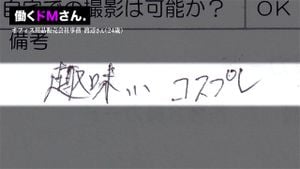 自宅での撮影は可能か？ OK
働くドMさん。
オフィス用品販売会社事務 渡辺さん(24歳)
備考
趣味… コスプレ